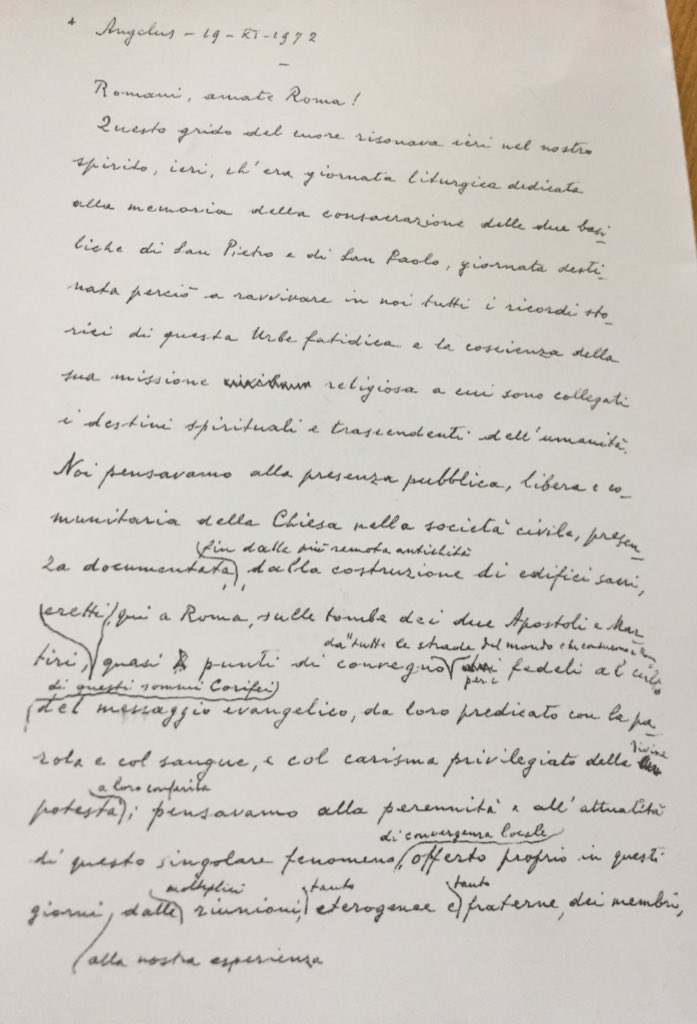 Angelus - 19 - XI - 1972
Romani, amate Roma!
Questo grido del cuore risonava ieri nel nostro
spirito, ieri, ch'era giornata liturgica dedicata
alla memoria della consacrazione delle due basi-
liche di San Pietro e di San Paolo, giornata desti-
nata perciò a ravvivare in noi tutti i ricordi sto-
rici di questa Urbe fatidica e la coscienza della
sua missione religiosa a cui sono collegati
i destini spirituali e trascendenti dell'umanità.
Noi pensavamo alla presenza pubblica, libera e co-
munitaria della Chiesa nella società civile, presen-
fin dalla più remota antichità
za documentata, dalla costruzione di edifici sacri,
eretti, qui a Roma, sulle tombe dei due Apostoli e Mar-
da tutte le strade del mondo che
tiri, quasi punti di convegno per i fedeli al culto
di questi sommi Corifei
del messaggio evangelico, da loro predicato con la pa-
rola e col sangue, e col carisma privilegiato della divina
a loro conferita
potestà; pensavamo alla perennità e all'attualità
di convergenza locale
di questo singolare fenomeno, offerto proprio in questi
molteplici tanto tanto
giorni, dalle riunioni, eterogenee e fraterne, dei membri,
alla nostra esperienza